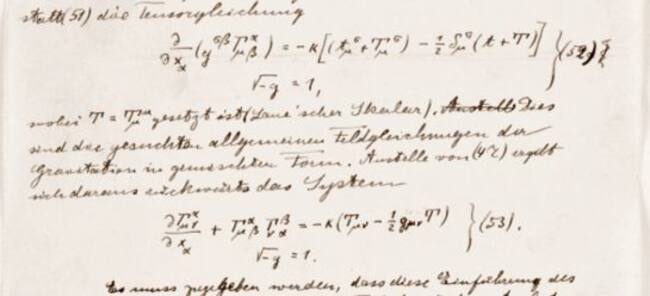 statt (51) die Tensorgleichung
∂/∂x_α (g^{σβ} Γ^α_{μβ}) = -κ[(t^σ_μ + T^σ_μ) - ½ δ^σ_μ (t + T)] } (52)
√-g = 1,
wobei T = T^μ_μ gesetzt ist (Laue'scher Skalar). Anstelle Dies
sind die gesuchten allgemeinen Feldgleichungen der
Gravitation in gemischter Form. Anstelle von (47) ergibt
sich daraus rückwärts das System
∂Γ^α_{μν}/∂x_α + Γ^α_{μβ} Γ^β_{να} = -κ(T_{μν} - ½ g_{μν} T) } (53).
√-g = 1.
Es muss zugegeben werden, dass diese Einführung des